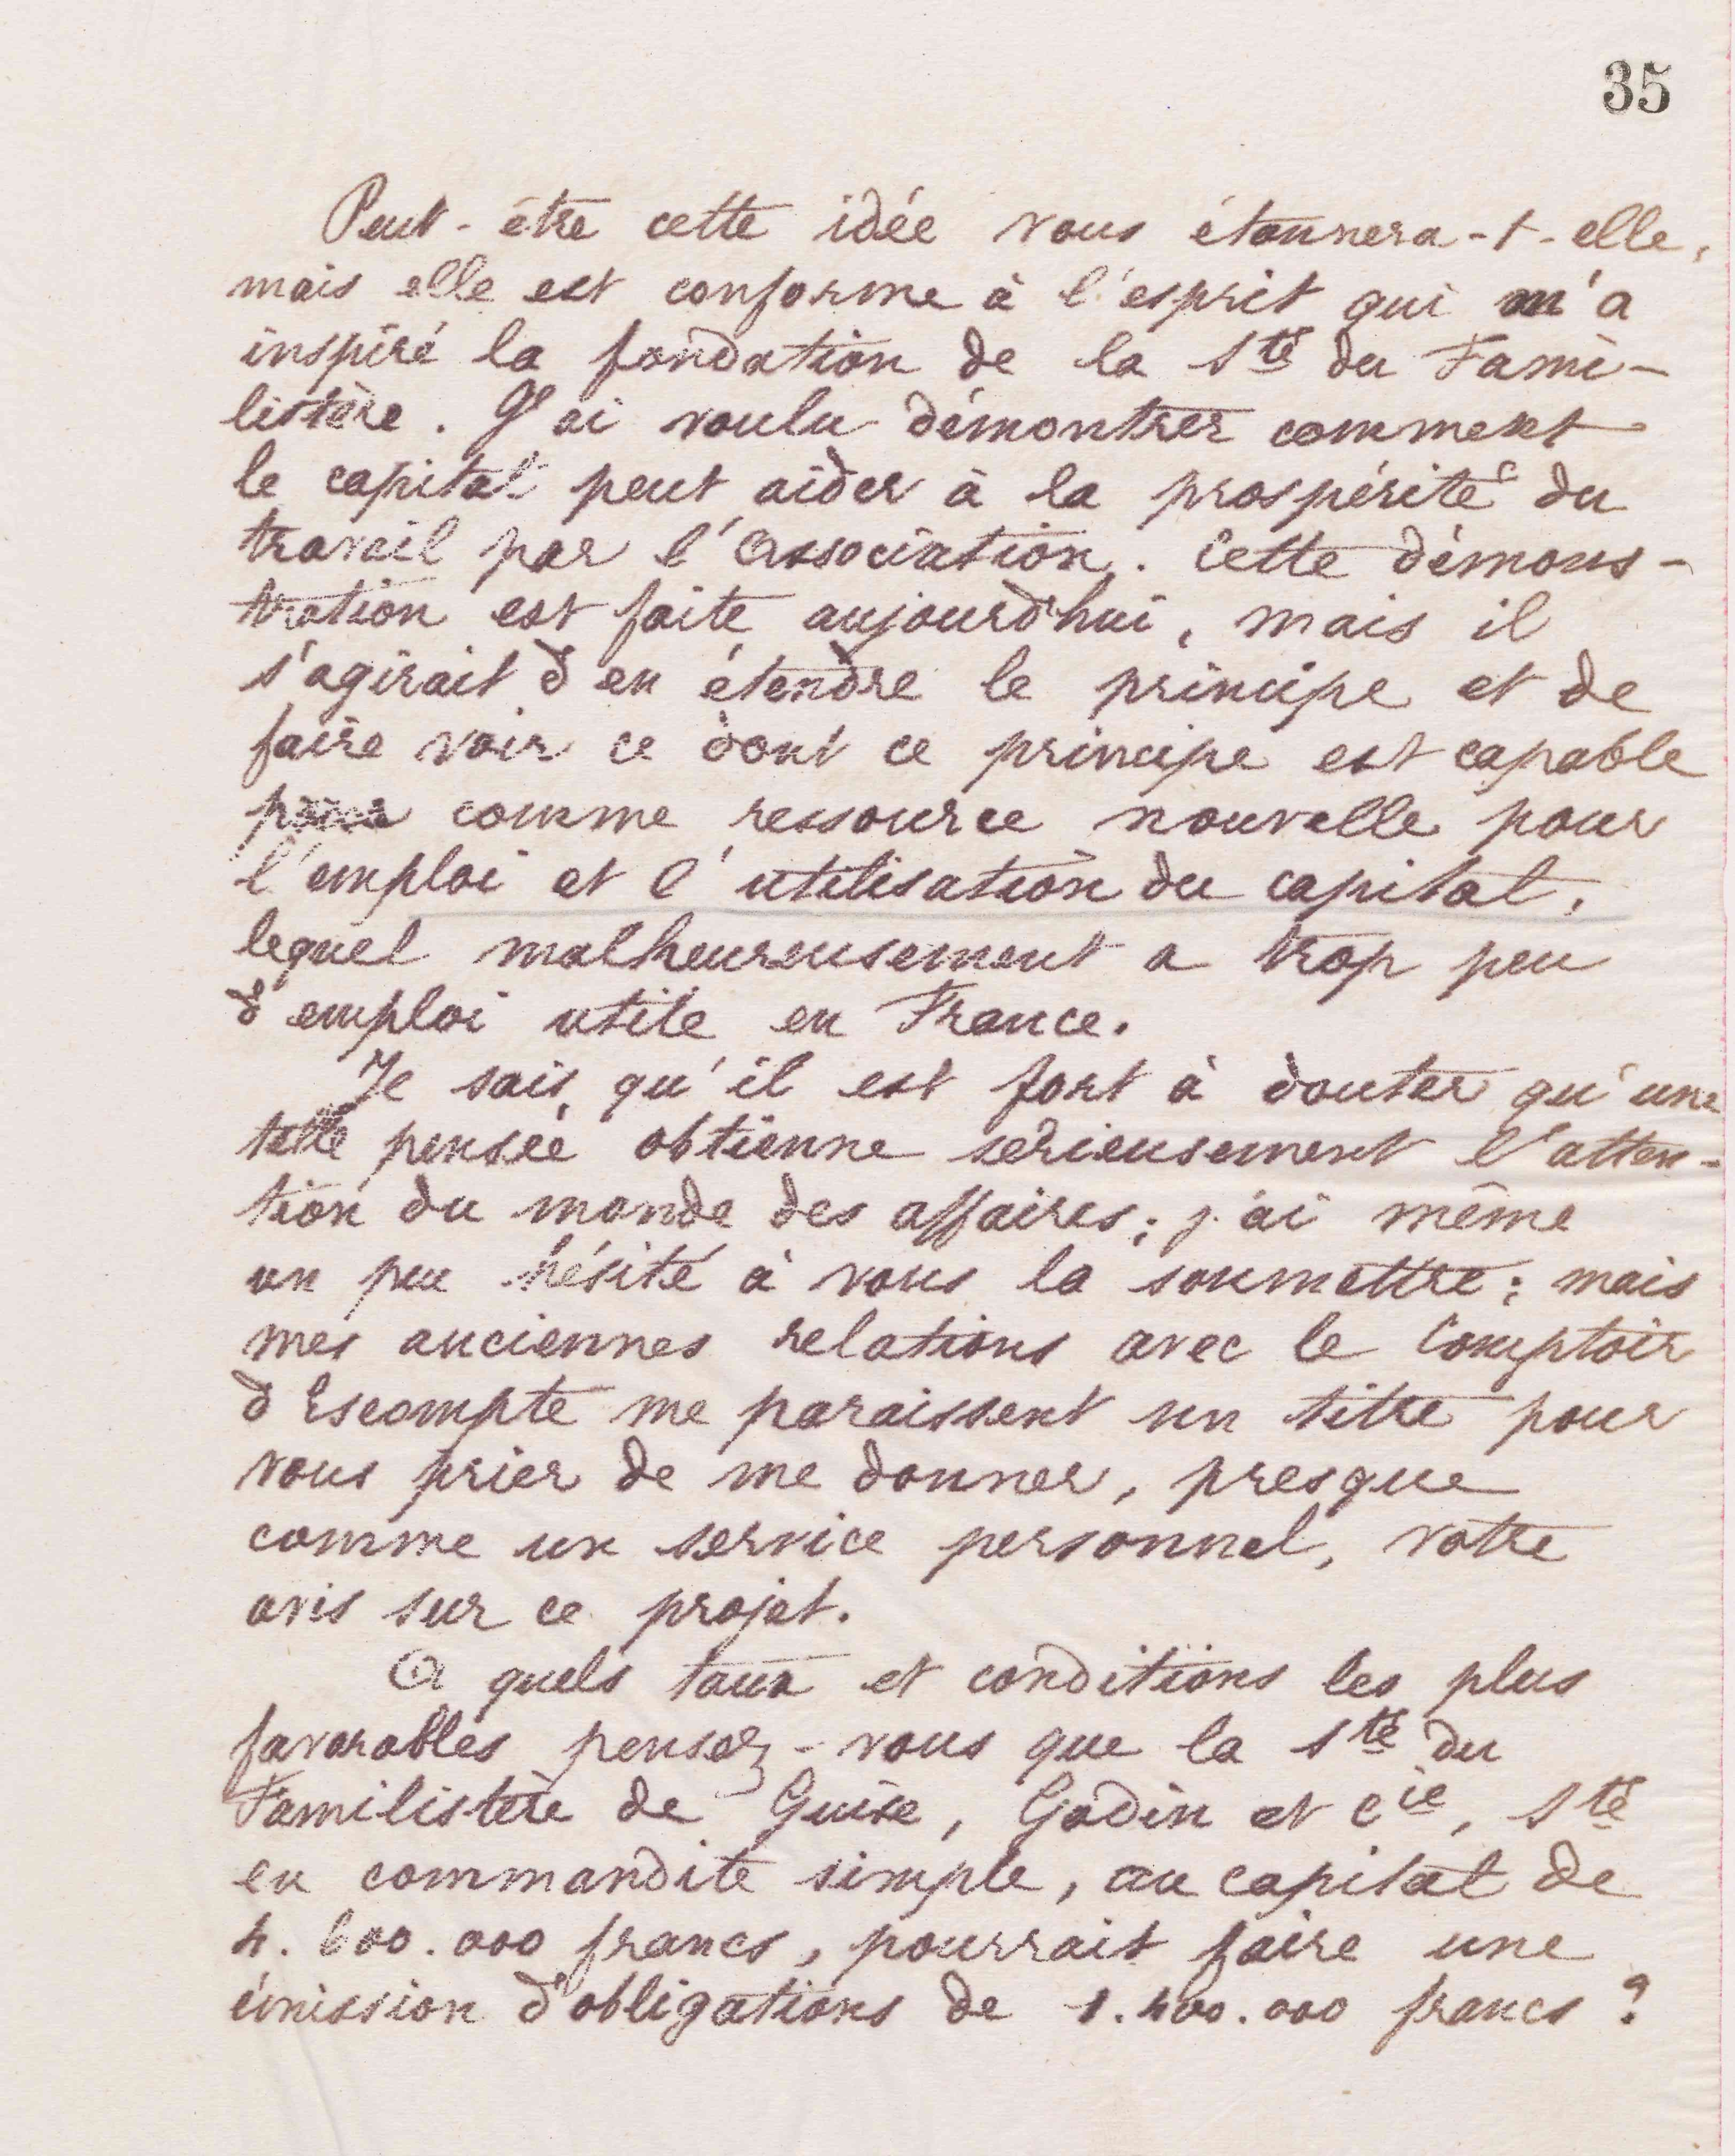 35
Peut-être cette idée vous étonnera-t-elle,
mais elle est conforme à l'esprit qui m'a
inspiré la fondation de la Sté du Fami-
listère. J'ai voulu démontrer comment
le capital peut aider à la prospérité du
travail par l'Association. Cette démons-
tration est faite aujourd'hui, mais il
s'agirait d'en étendre le principe et de
faire voir ce dont ce principe est capable
comme ressource nouvelle pour
l'emploi et l'utilisation du capital,
lequel malheureusement a trop peu
d'emploi utile en France.
Je sais qu'il est fort à douter qu'une
telle pensée obtienne sérieusement l'atten-
tion du monde des affaires; j'ai même
un peu hésité à vous la soumettre; mais
mes anciennes relations avec le Comptoir
d'Escompte me paraissent un titre pour
vous prier de me donner, presque
comme un service personnel, votre
avis sur ce projet.
A quels taux et conditions les plus
favorables pensez-vous que la Sté du
Familistère de Guise, Godin et Cie, Sté
en commandite simple, au capital de
4.600.000 francs, pourrait faire une
émission d'obligations de 1.400.000 francs ?